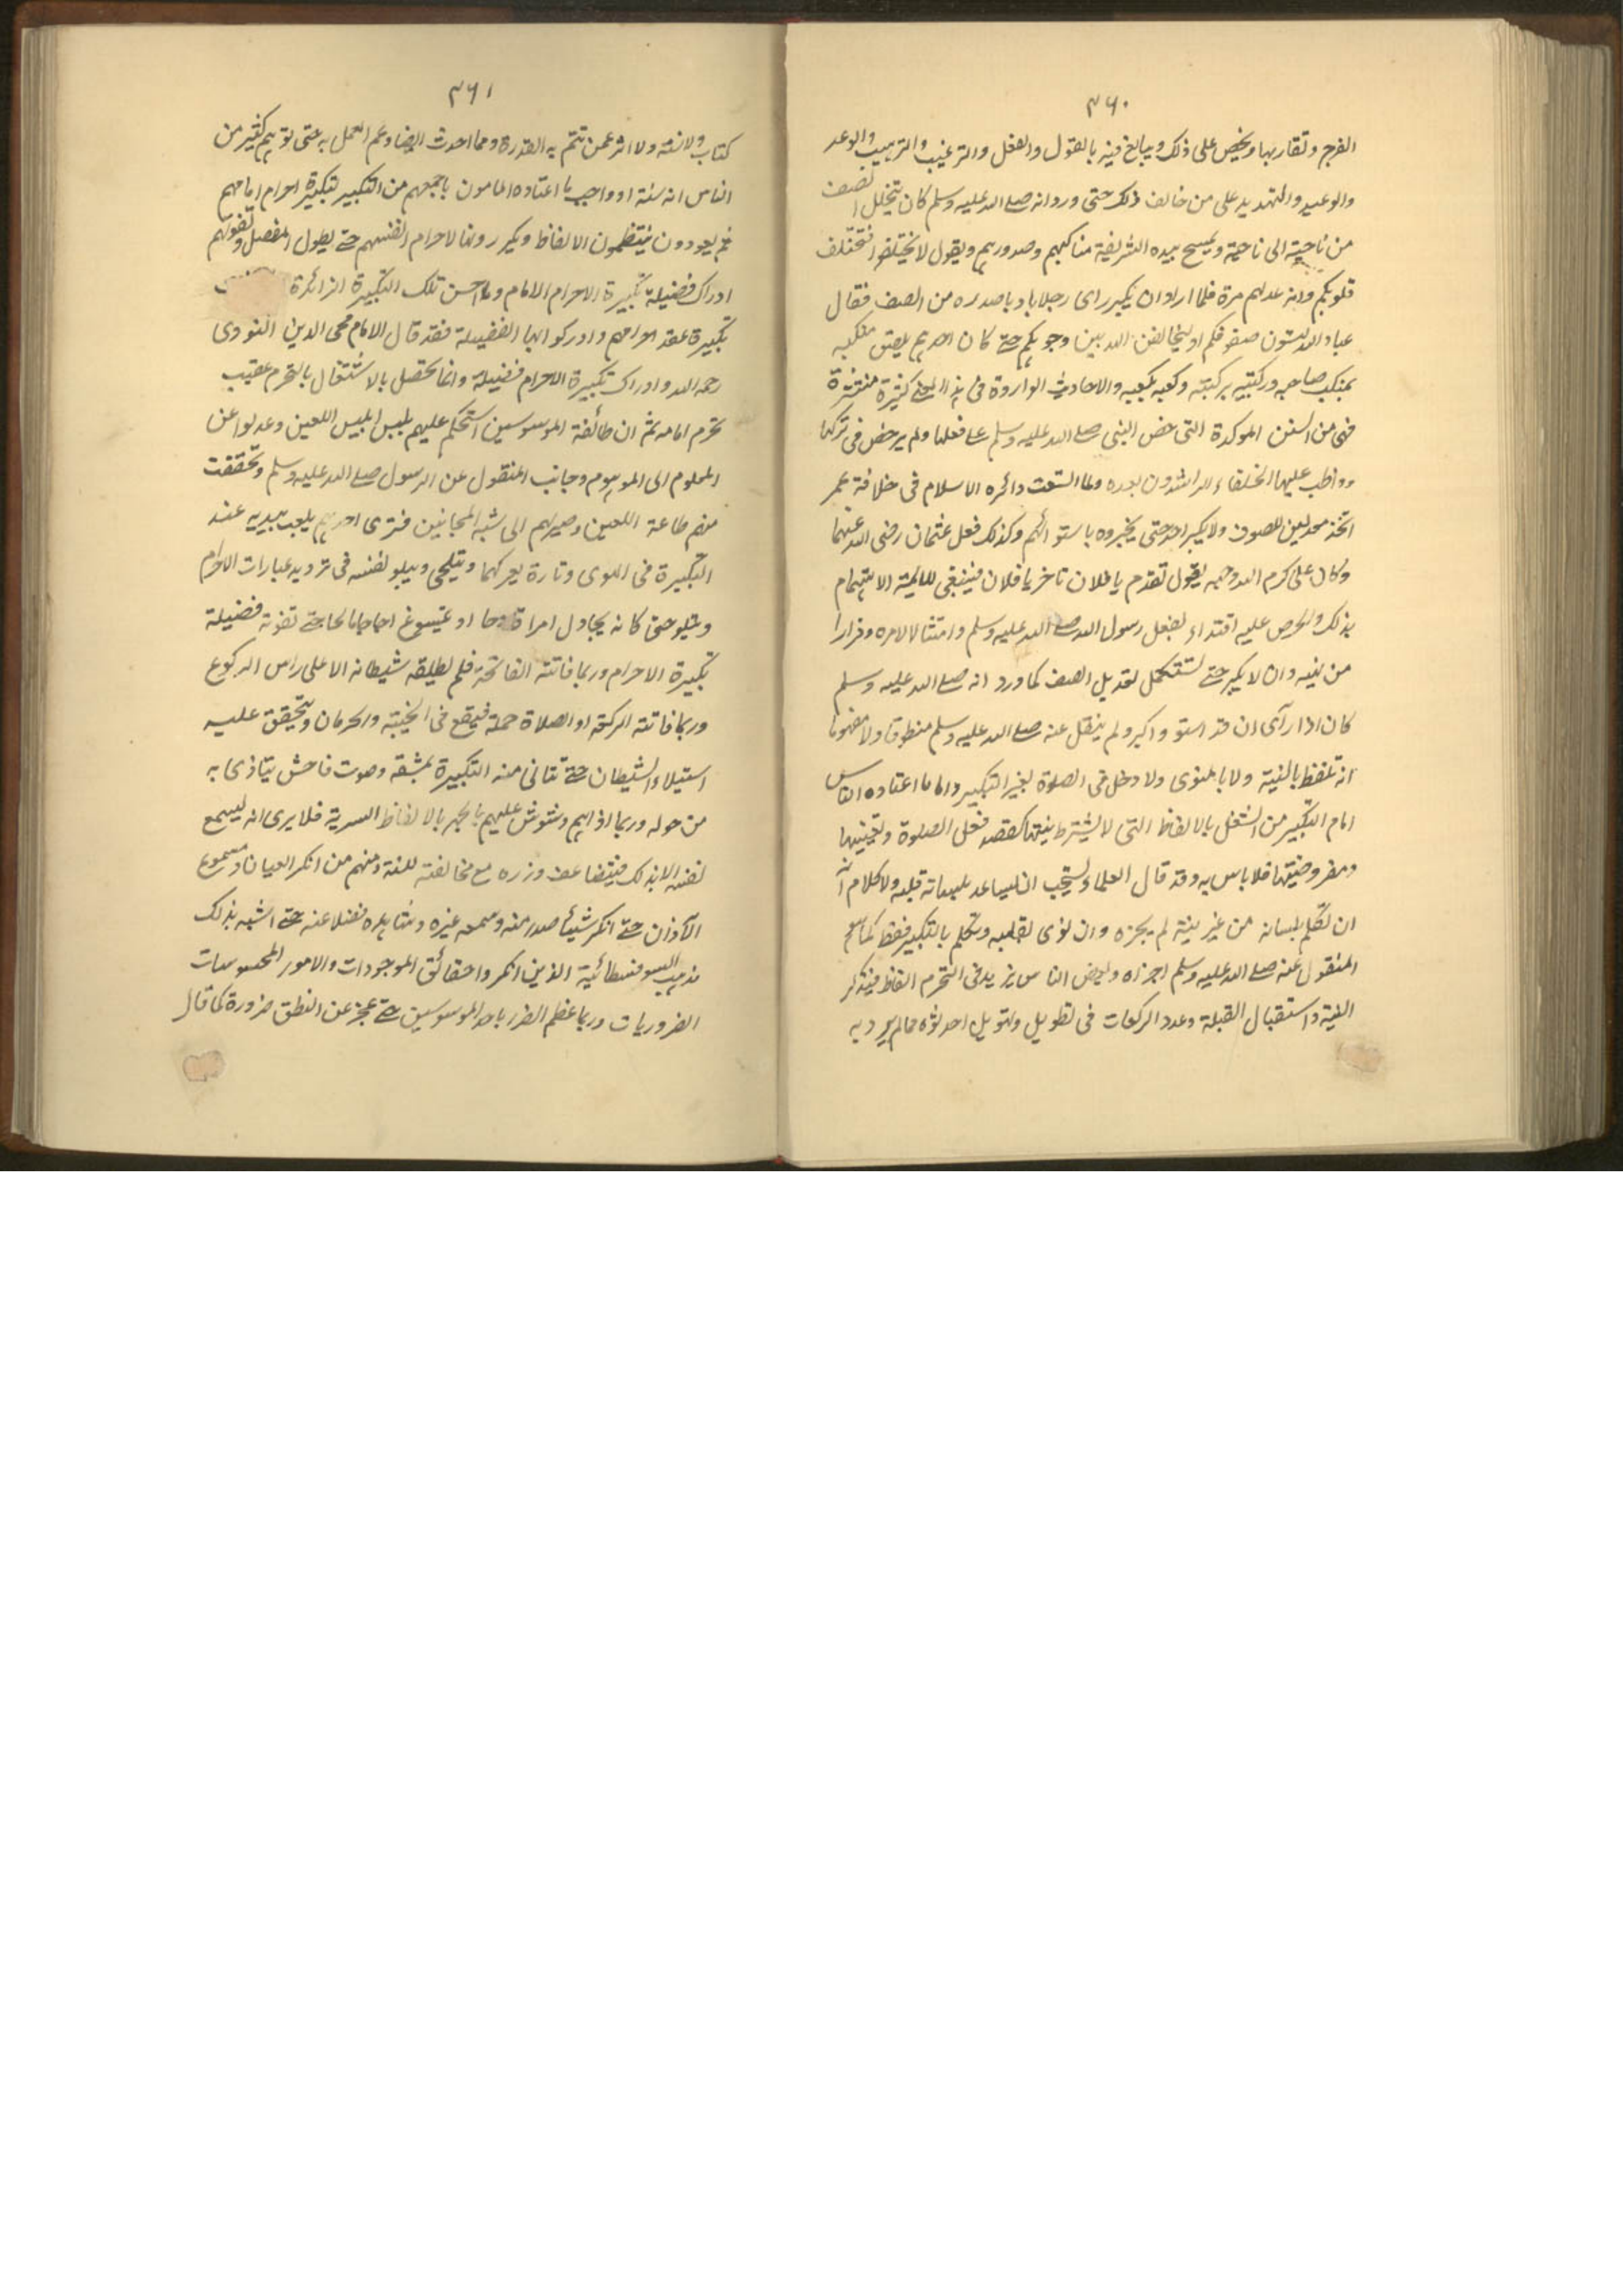 ٣٦٠
الفرج وتقاربها ويحض على ذلك ويبالغ فيه بالقول والفعل والترغيب والترهيب والوعد
والوعيد والتهديد على من خالف ذلك حتى ورد انه صلے الله عليه وسلم كان يتخلل الصف
من ناحية الى ناحية ويمسح بيده الشريفة مناكبهم وصدورهم ويقول لا تختلفوا فتختلف
قلوبكم وانه عدلهم مرة فلما اراد ان يكبر راى رجلا باديا صدره من الصف فقال
عباد الله لتسون صفوفكم او ليخالفن الله بين وجوهكم حتے كان احدهم يلصق منكبه
بمنكب صاحبه وركبتيه بركبته وكعبه بكعبه والاحاديث الواردة فى هذا المعنے كثيرة منتشرة
فهى من السنن الموكدة التى حض النبى صلے الله عليه وسلم علے فعلها ولم يرخص فى تركها
وواظب عليها الخلفاء الراشدون بعده ولما اتسعت دائره الاسلام فى خلافة عمر
اتخذ معدلين للصوف ولا يكبر احد حتى يخبروه باستوائهم وكذلك فعل عثمان رضى الله عنهما
وكان على كرم الله وجهه يقول تقدم يا فلان تاخر يا فلان فينبغى للائمة الاهتمام
بذلك والحرص عليه اقتداء بفعل رسول الله صلے الله عليه وسلم وامتثالا لامره وفرارا
من نهيه وان لا يكبر حتے تستكمل تعديل الصف كما ورد انه صلے الله عليه وسلم
كان اذا رآى ان قد استووا كبر ولم ينقل عنه صلے الله عليه وسلم منطوقا ولا مفهوما
انه تلفظ بالنية ولا بالمنوى ولا دخل فى الصلوة بغير التكبير واما ما اعتاده الناس
امام التكبير من الشغل بالالفاظ التى لا يشترط نيتها كقصد فعل الصلوة وتعيينها
ومفروضيتها فلا باس به وقد قال العلماء يستحب ان يساعد بلسانه قلبه ولا كلام انه
ان تكلم بلسانه من غير نية لم يجزه وان نوى بقلبه وتكلم بالتكبير فقط كما هو
المنقول عنه صلے الله عليه وسلم اجزاه وبعض الناس يزيد فى التحرم الفاظ فيذكر
النية واستقبال القبلة وعدد الركعات فى تطويل وتهويل احدثوه مما لم يرد به
٣٦١
كتاب ولا سنة ولا اثر عمن تتم به القدرة ومما احدث ايضا وعم العمل به حتى توهم كثير من
الناس انه سنة او واجب ما اعتاده المامون باجمعهم من التكبير لتكبيرة احرام امامهم
ثم يعودون ينتظمون الالفاظ ويكررونها لاحرام انفسهم حتے يطول الفصل وتفوتهم
ادراك فضيلة تكبيرة الاحرام الامام وما احسن تلك التكبيرة الزائدة
تكبيرة عقد احرامهم وادركوا بها الفضيلة فقد قال الامام محى الدين النووى
رحمه الله وادراك تكبيرة الاحرام فضيلة وانما تحصل بالاشتغال بالتحرم عقيب
تحرم امامه ثم ان طائفة الموسوسين استحكم عليهم تلبس ابليس اللعين وعدلوا عن
المعلوم الى الموهوم وجانب المنقول عن الرسول صلے الله عليه وسلم وتحققت
منهم طاعة اللعين وصيرهم الى شبه المجانين فترى احدهم يلعب بيديه عند
التكبيرة فى الهوى وتارة يعركهما ويتلجى ويبلو نفسه فى ترديد عبارات الاحرام
ويتلو حتى كانه يجادل امرا فادحا او يسوغ اجاجا مالحا حتے تفوته فضيلة
تكبيرة الاحرام وربما فاتته الفاتحة فلم يطيقه شيطانه الا على راس الركوع
وربما فاتته الركعة او الصلاة جملة فيقع فى الخيبة والحرمان ويتحقق عليه
استيلاء الشيطان حتے تتاتى منه التكبيرة بمشقه وصوت فاحش يتاذى به
من حوله وربما اذاهم وشوش عليهم بالجهر بالالفاظ السرية فلا يرى انه ليسمع
نفسه الا بذلك فيتضاعف وزره مع مخالفته للسنة ومنهم من انكر العيان ومسموع
الآذان حتے انكر شيئا صدر منه وسمعه غيره وشاهده فضلا عنه حتے اشبه بذلك
مذهب السوفسطائية الذين انكروا حقائق الموجودات والامور المحسوسات
الضروريات وربما عظم الضرر باحد الموسوسين حتے عجز عن النطق ضرورة كما قال